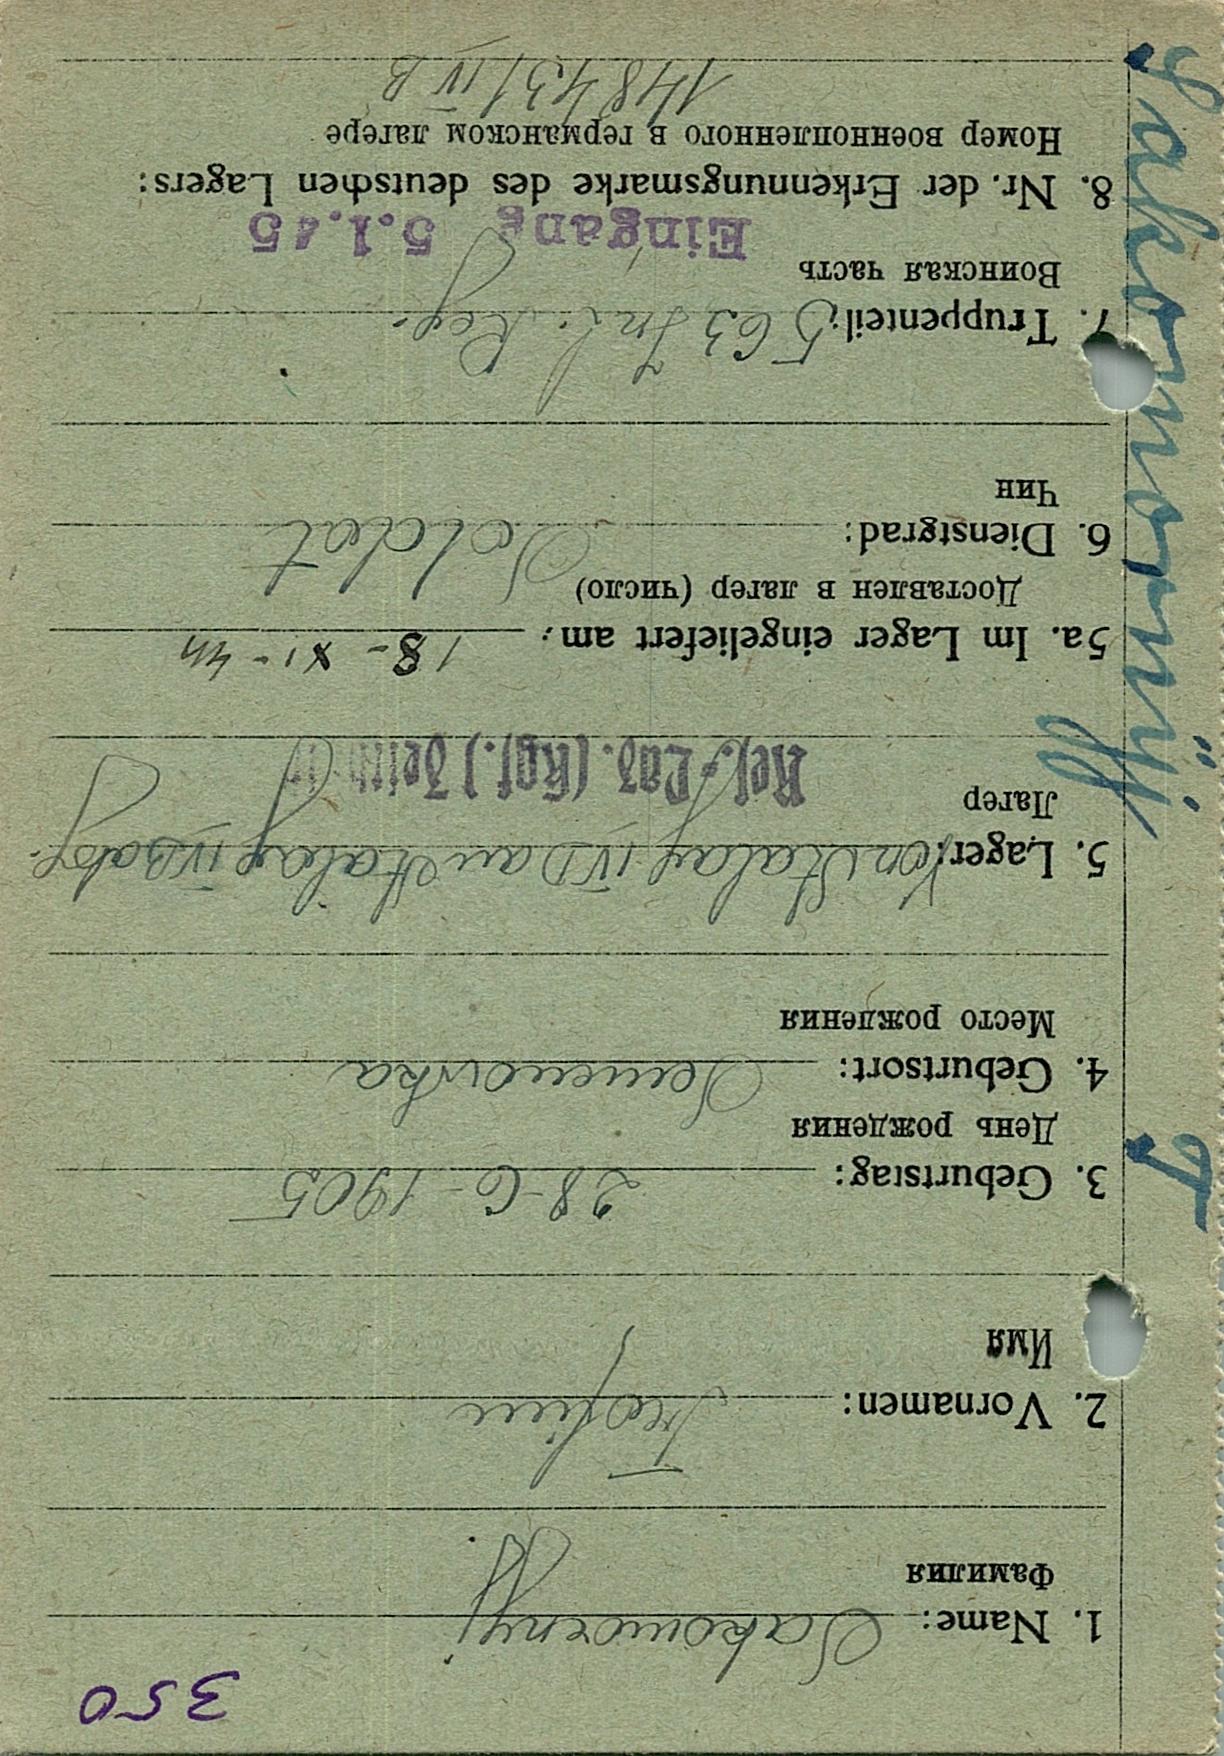 350
1. Name: Sakomornyj
Фамилия
2. Vornamen: Trofim
Имя
3. Geburtstag: 28-6-1905
День рождения
4. Geburtsort: Semenowka
Место рождения
5. Lager: Von Stalag IVD an Stalag IVB abg.
Лагерь
Res.-Laz. (Kgf.)
5a. Im Lager eingeliefert am: 18-XI-44
Доставлен в лагерь (число)
6. Dienstgrad: Soldat
Чин
7. Truppenteil: 563 Inf. Reg.
Воинская часть
Eingang 5.1.45
8. Nr. der Erkennungsmarke des deutschen Lagers:
Номер военнопленного в германском лагере
14843/IV B